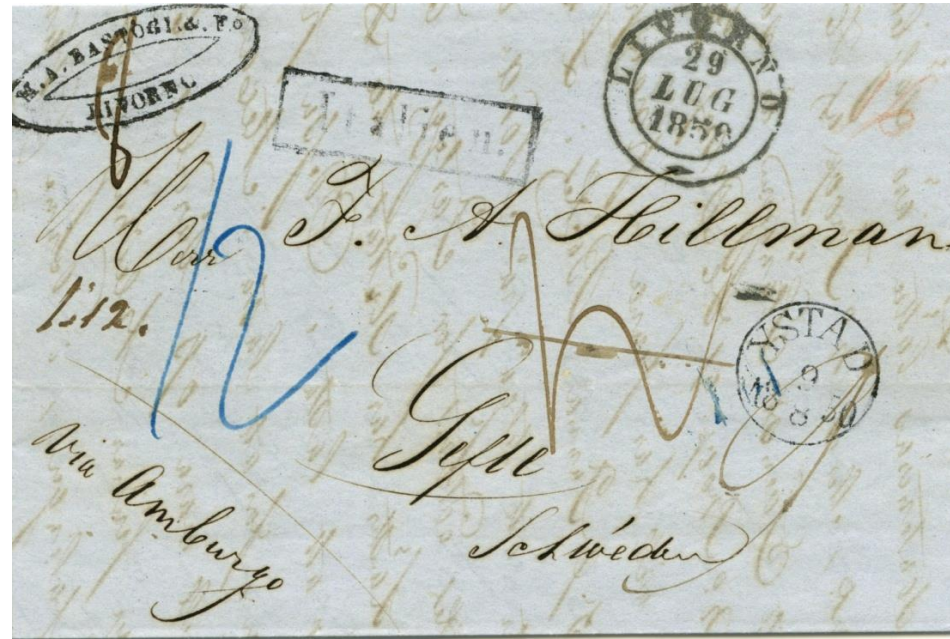 M. A. BASTOGI & Fº
LIVORNO
Italien.
LIVORNO
29
LUG
1850
Herr F. A. Hillman
12
L: 12.
YSTAD
9
8
1850
Gefle
Schweden
via Amburgo